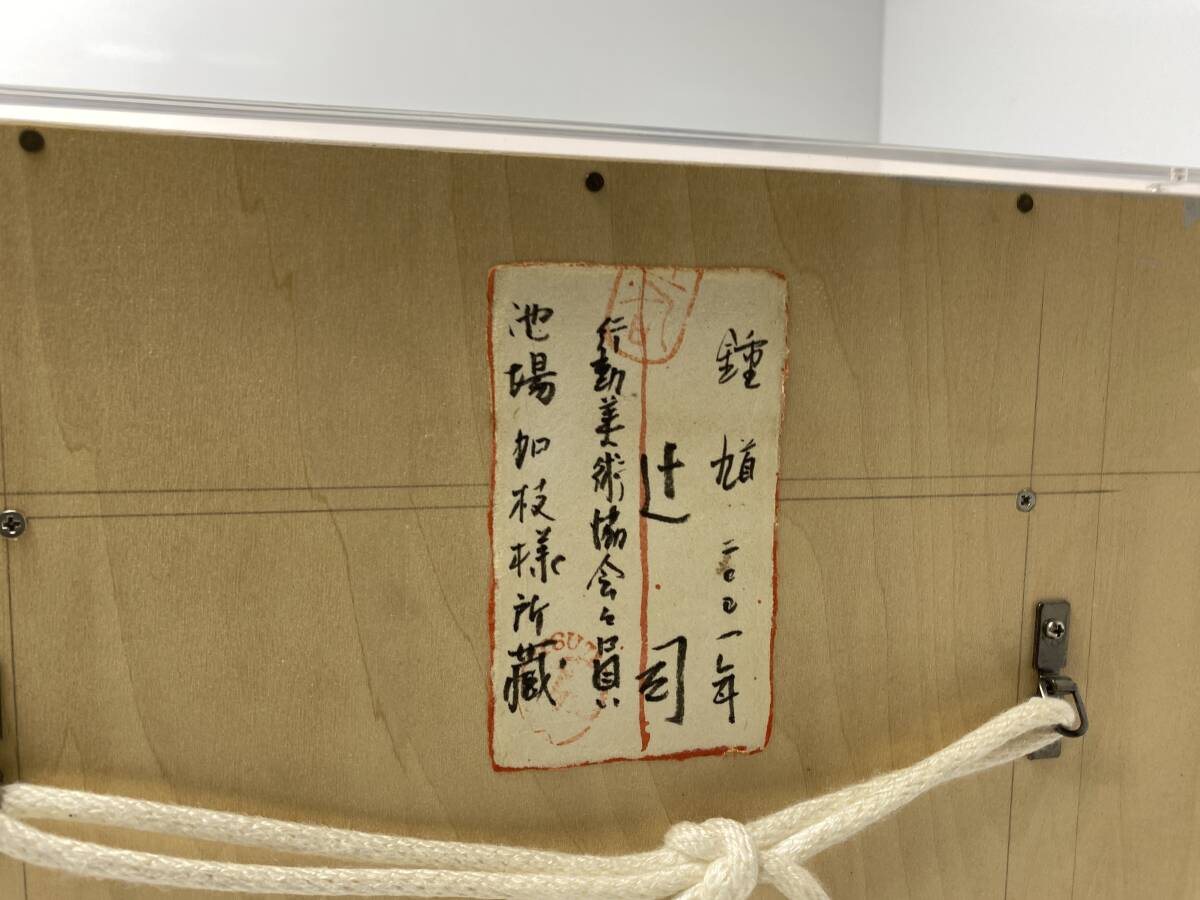 鍾馗 二〇〇一年
辻 司
行動美術協会々員
池場加枝様所蔵